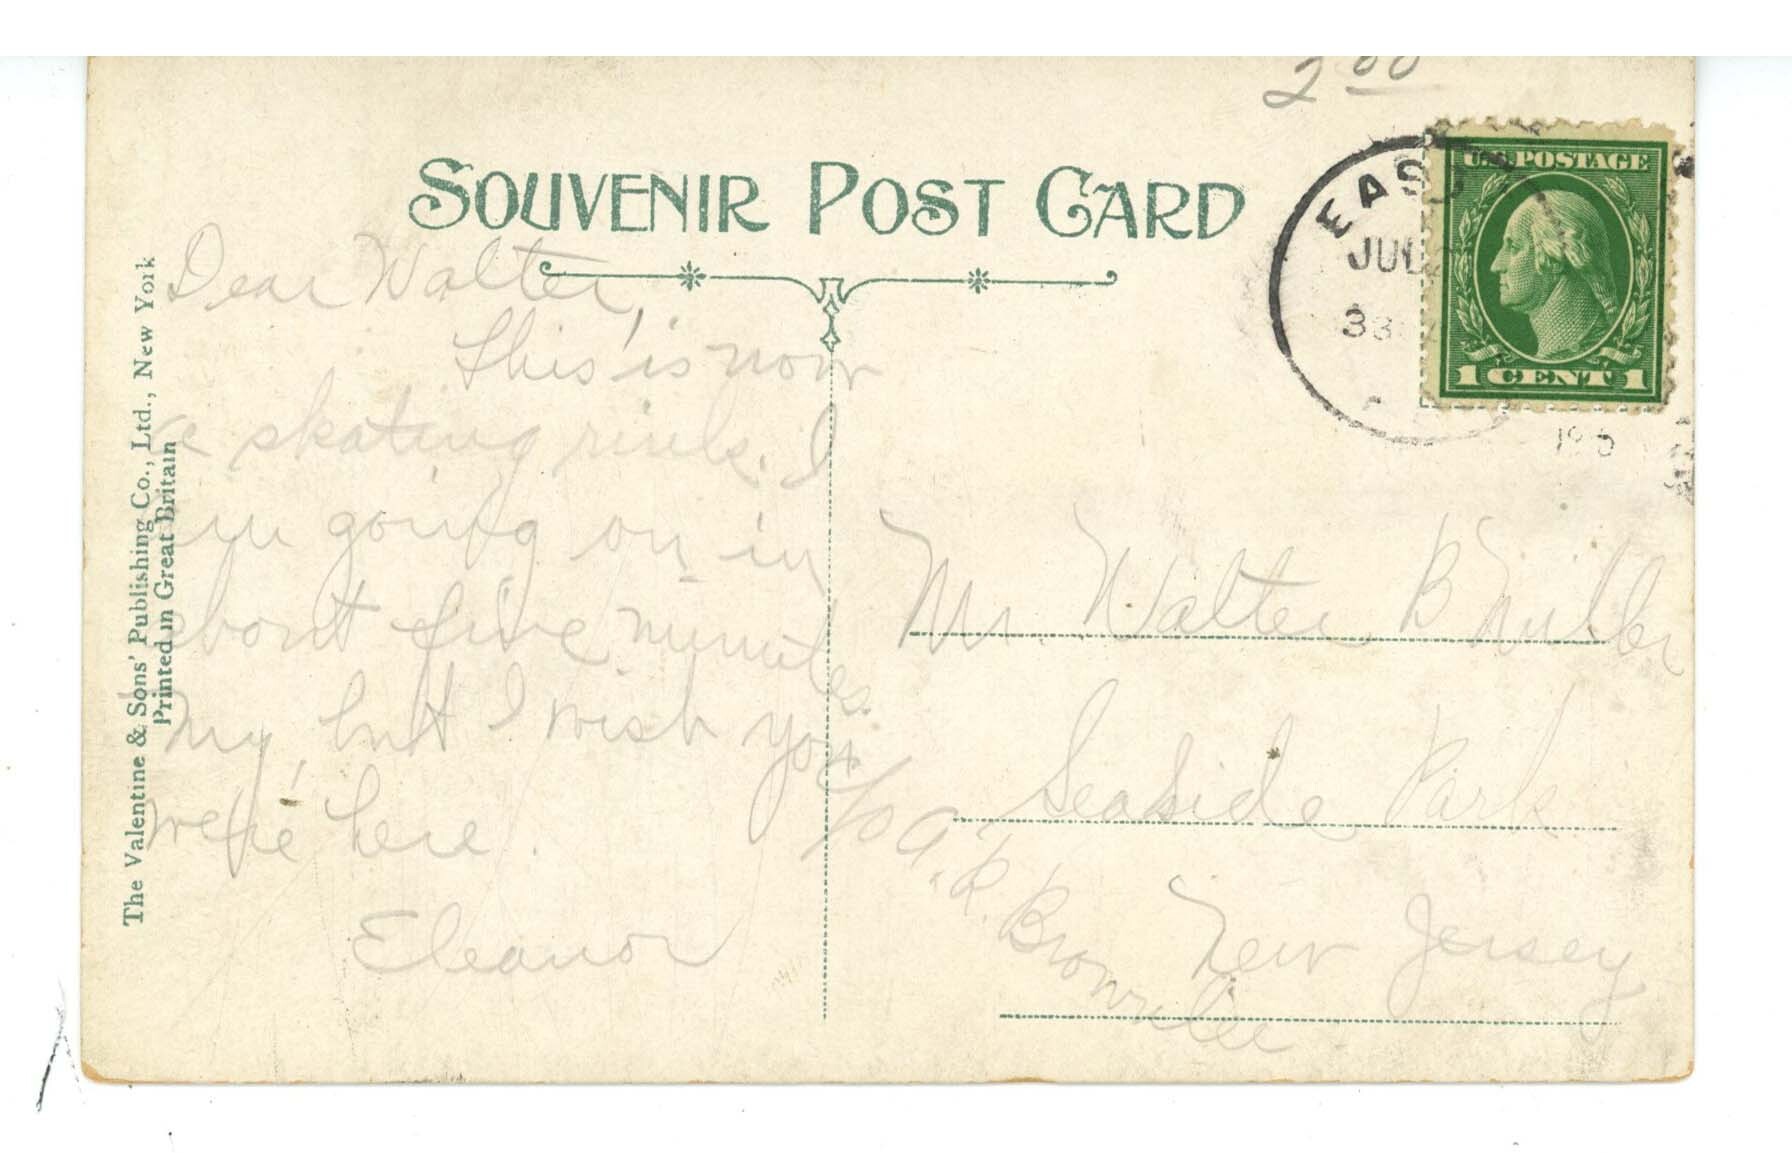 2 00
SOUVENIR POST CARD
U.S. POSTAGE
1 CENT 1
EAS
JUL
33
The Valentine & Sons' Publishing Co., Ltd., New York
Printed in Great Britain
Dear Walter,
This is now
a skating rink. I
am going on in
about five minutes.
My, but I wish you
were here.
Eleanor
Mr Walter B
Seaside Park
New Jersey
c/o A. R.